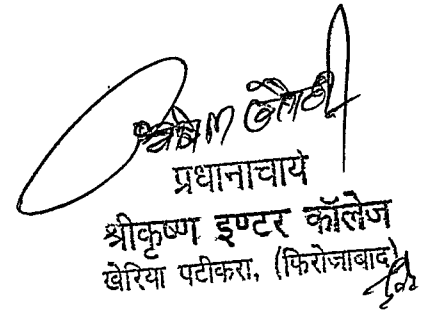 प्रधानाचार्य
श्रीकृष्ण इण्टर कॉलेज
खेरिया पटीकरा, (फिरोजाबाद)